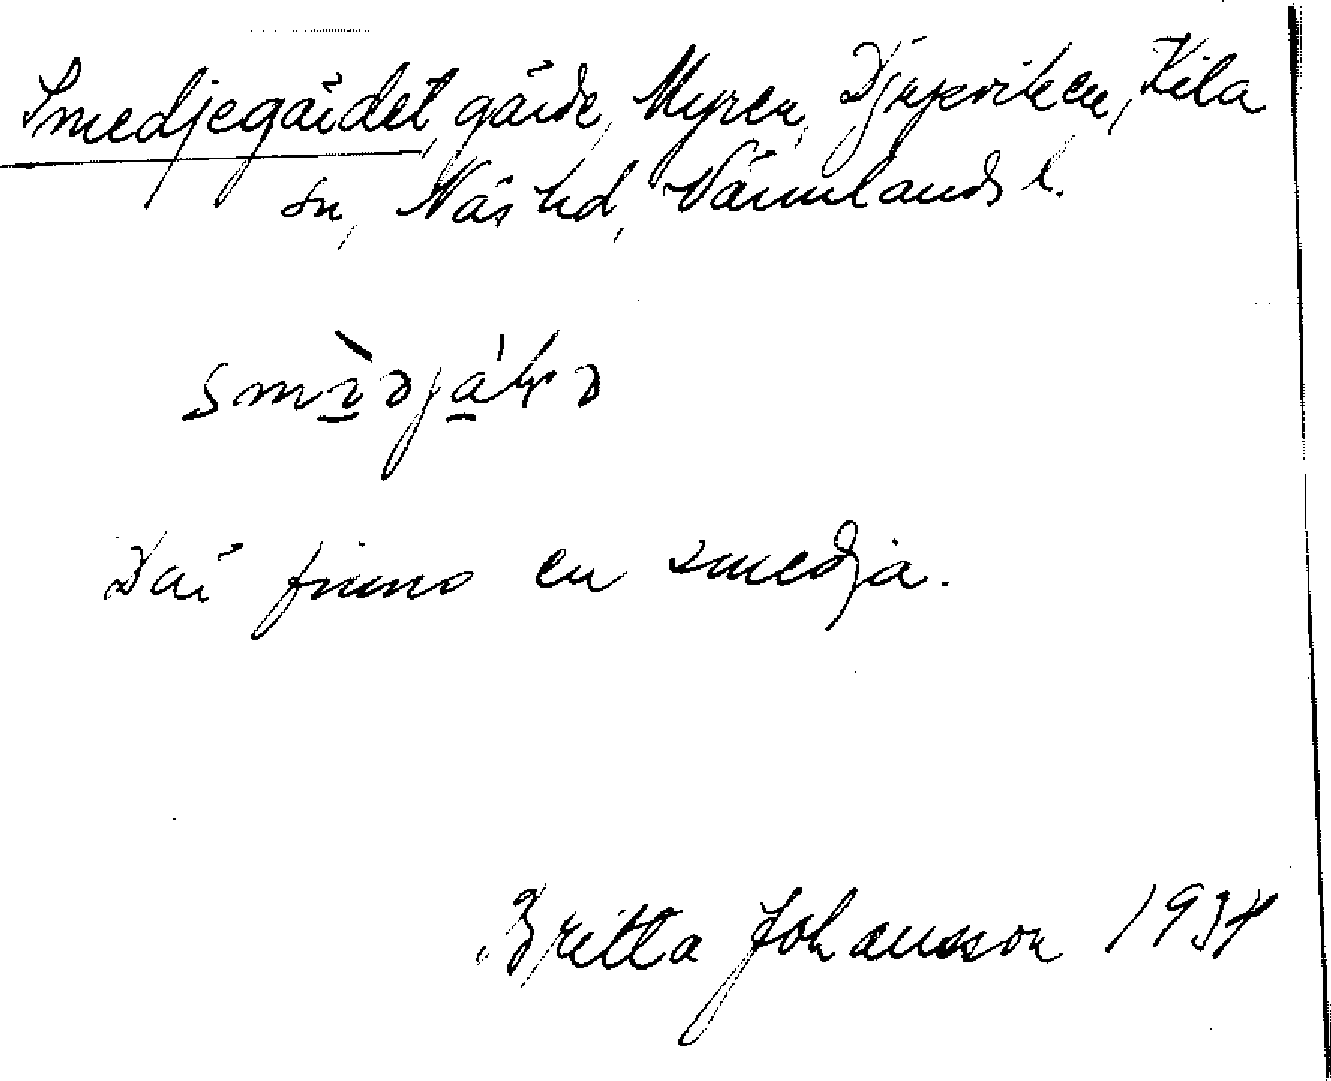 Smedjegärdet, gärde, Myren, Djupviken, Kila
sn, Näs hd, Värmlands l.
Där finns en smedja.
Britta Johansson 1934